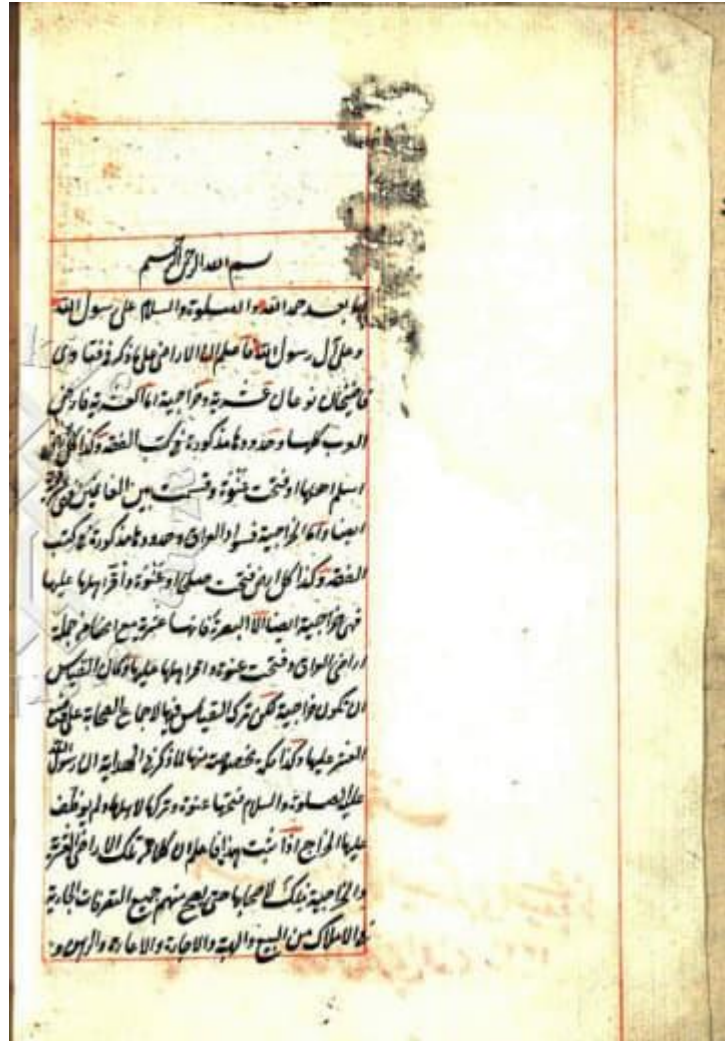 بسم الله الرحمن الرحيم
اما بعد حمد الله والصلوة والسلام على رسول الله
وعلى آل رسول الله فاعلم ان الاراضى على ما ذكر فى فتاوى
قاضيخان نوعان عشرية وخراجية اما العشرية فارض
العرب كلها وحدودها مذكورة فى كتب الفقه وكذا كل ارض
اسلم اهلها او فتحت عنوة وقسمت بين الغانمين فهى عشرية
ايضا واما الخراجية فسواد العراق وحدودها مذكورة فى كتب
الفقه وكذا كل ارض فتحت صلحا او عنوة واقر اهلها عليها
فهى خراجية ايضا الا البصرة فانها عشرية مع انها من جملة
اراضى العراق وفتحت عنوة واقر اهلها عليها وكان القياس
ان تكون خراجية لكن ترك القياس فيها لاجماع الصحابة على وضع
العشر عليها وكذا مكة مخصوصة منها لما ذكر فى الهداية ان رسول الله
عليه الصلوة والسلام فتحها عنوة وتركها لاهلها ولم يوظف
عليها الخراج اذا ثبت هذا فاعلم ان كلا من تلك الاراضى العشرية
والخراجية ملك لاصحابها حتى يصح منهم جميع التصرفات الجارية
فى الاملاك من البيع والهبة والاجارة والاعارة والرهن و